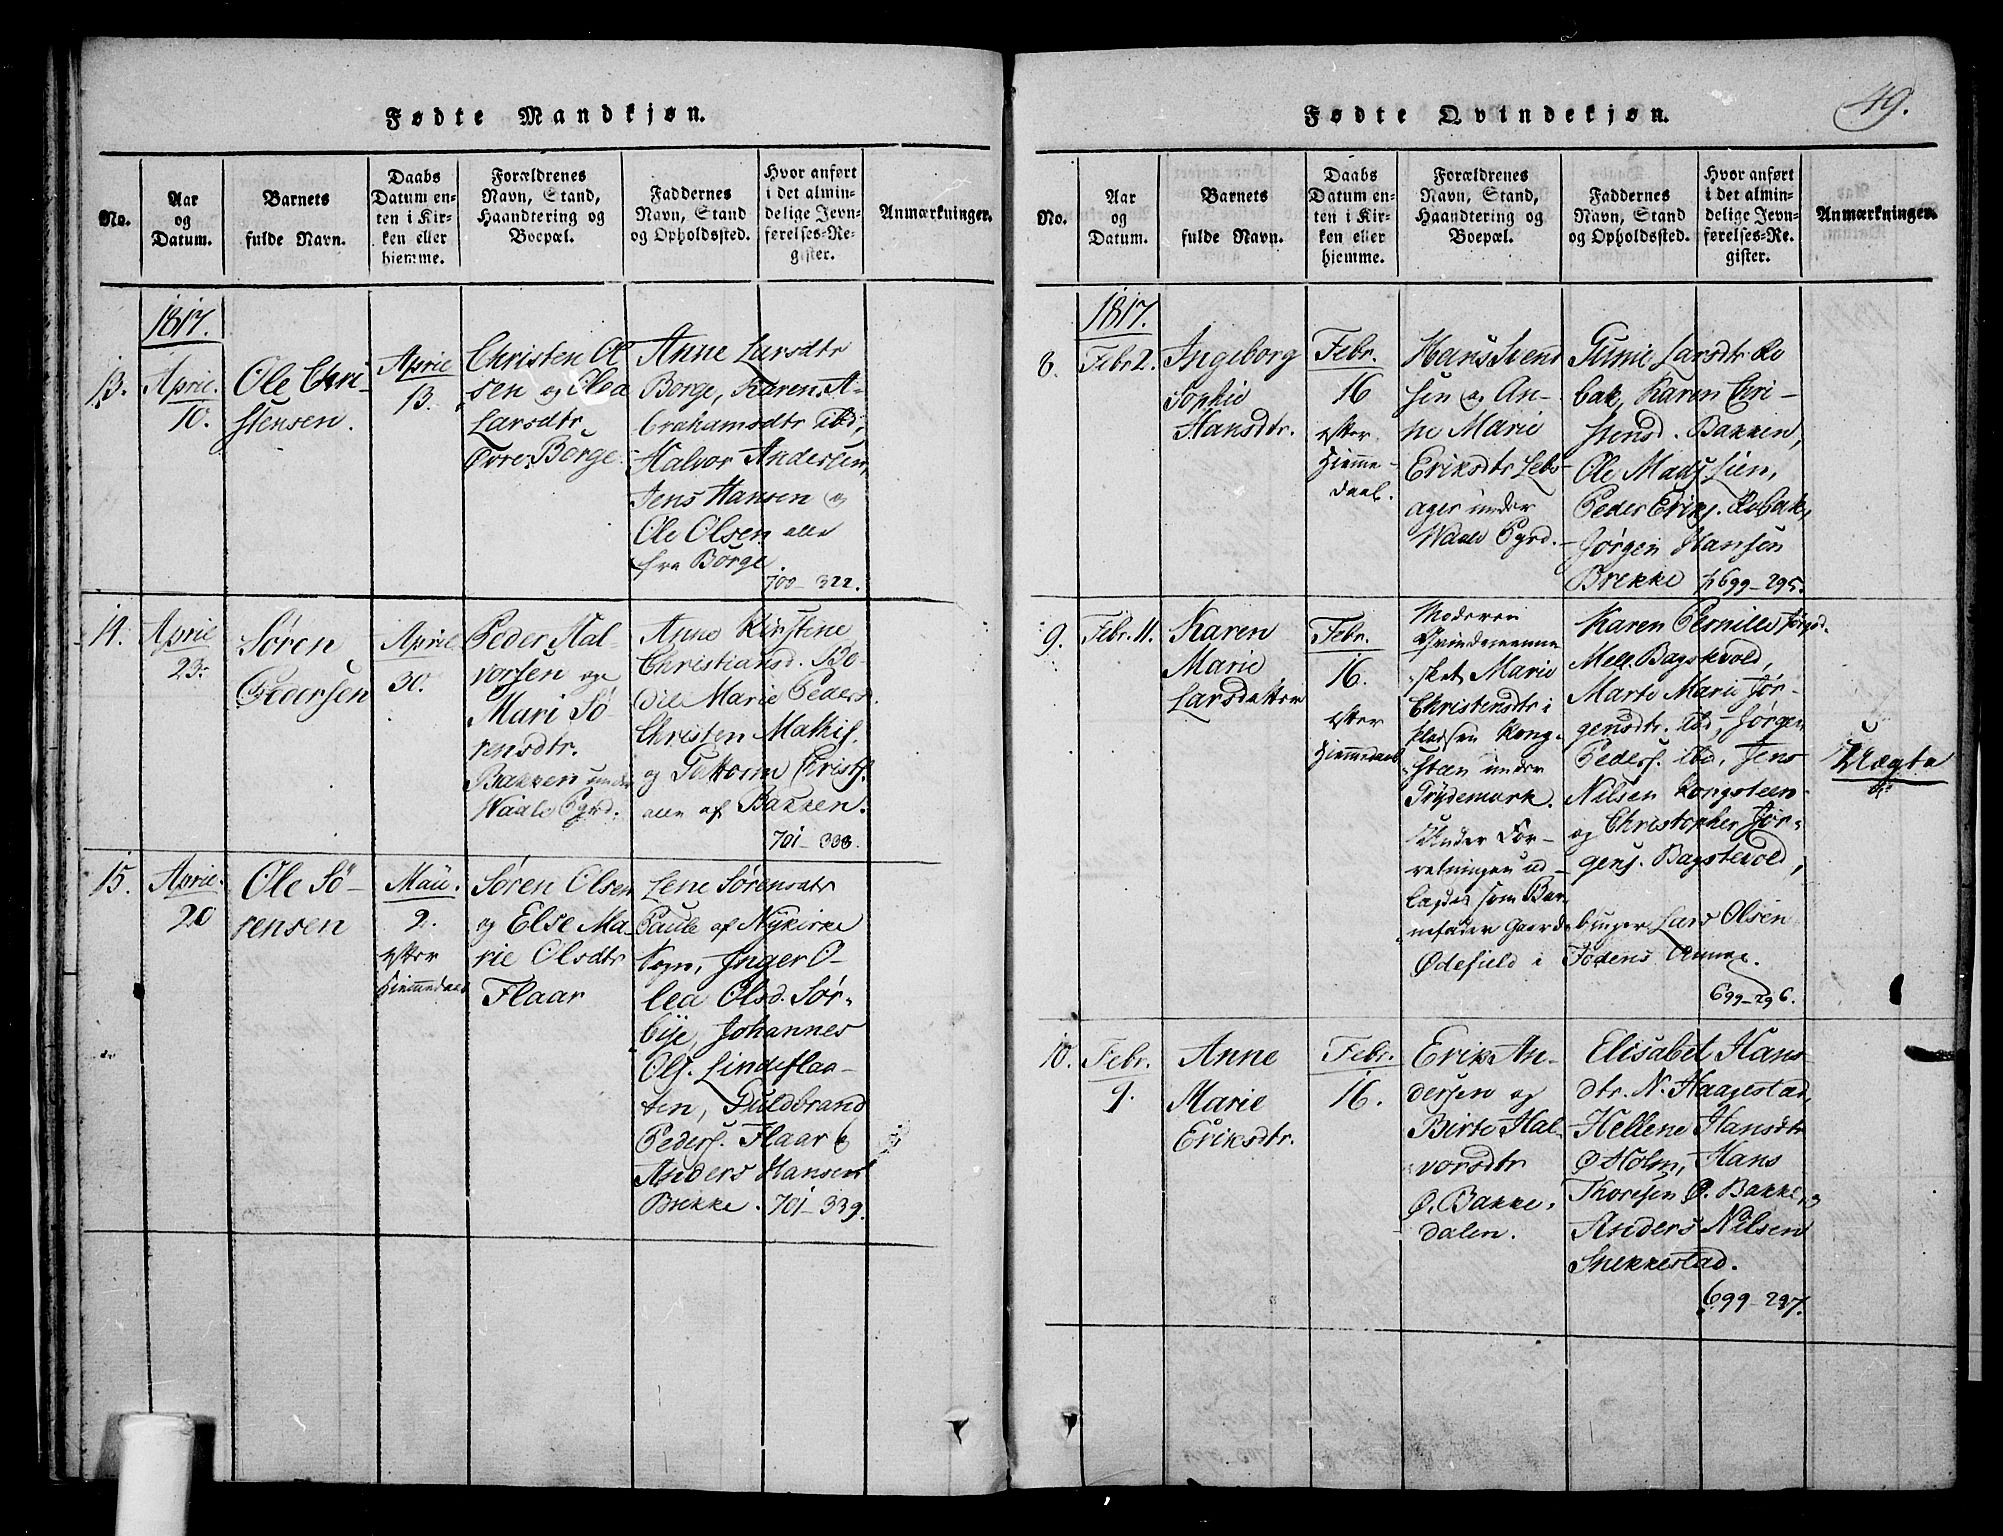 Fødte Mandkjøn.
No.
Aar
og
Datum.
Barnets
fulde Navn.
Daabs
Datum en-
ten i Kir-
ken eller
hjemme.
Forældrenes
Navn, Stand,
Haandtering og
Boepæl.
Faddernes
Navn, Stand
og Opholdssted.
Hvor anført
i det almin-
delige Jevn-
førelses-Re-
gister.
Anmærkninger.
1817.
13.
April
10.
Ole Chri-
stensen.
April
13.
Christen Ol
sen og Olea
Larsdtr
Øvre Borge.
Anne Larsdtr
Borge, Karen A-
brahamsdtr ibd,
Halvor Andersen,
Jens Hansen og
Ole Olsen alle
fra Borge.
700-322.
14.
April
23.
Søren
Pedersen
April
30.
Peder Hal-
vorsen og
Mari Sö-
rensdtr.
Bakken under
Waale Pgrd.
Anne Kirstine
Christiansd. Bo-
dil Marie Peders.
Christen Mathis.
og Guttorm Christs.
alle af Bakken.
701-338.
15.
April.
20
Ole Sö-
rensen
Mai.
2.
efter
Hiemmedaab
Søren Olsen
og Else Ma-
rie Olsdtr
Flaar
Lene Sørensdtr
Paule af Nykirke
Sogn, Inger O-
lea Olsd. Sør-
bye, Johannes
Ols. Lindeflaa-
ten, Guldbrand
Peders. Flaar &
Anders Hansen
Brekke. 701-339.
Fødte Qvindekjøn.
49.
No.
Aar
og
Datum.
Barnets
fulde Navn.
Daabs
Datum en-
ten i Kir-
ken eller
hjemme.
Forældrenes
Navn, Stand,
Haandtering og
Boepæl.
Faddernes
Navn, Stand
og Opholdssted.
Hvor anført
i det almin-
delige Jevn-
førelses-Re-
gister.
Anmærkninger.
1817.
8.
Febr 2.
Ingeborg
Sophie
Hansdtr.
Febr.
16
efter
Hiemme-
daab.
Hans Svend
sen og An-
ne Marie
Eriksdtr Lebs-
ager under
Waale Pgrd.
Gunil Larsdtr Ro
bak, Karen Chri-
stensd. Bakken,
Ole Mads sien,
Peder Eriks. Robak,
Jørgen Hansen
Brekke 699-295.
9.
Febr. 11.
Karen
Marie
Larsdatter
Febr.
16.
efter
Hiemmedaab
Moderen
Qvindemenne
sket Marie
Christensdtr i
pladsen Kong-
steen under
Trydemark.
Under For-
retningen ud-
lagdes som Bar-
nefader Gaard-
bruger Lars Olsen
Ødefield i Fodens Annex.
Karen Pernille Jørgsd.
Mell. Bagstevold,
Marte Marie Jør-
gensdtr. ibd, Jørgen
Peders. ibd, Jens
Nilsen Kongsteen
og Christopher Jør-
gens. Bagstevold,
699-296.
Uægte
10.
Febr.
9.
Anne
Marie
Eriksdtr.
Febr.
16.
Erik An-
dersen og
Birte Hal-
vorsdtr
Ø. Bakke-
dalen.
Elisabet Hans-
dtr. N. Haagestad,
Hellene Hansdtr
Ø Holm, Hans
Thoresen Ø. Bakke, og
Anders Nilsen
Snekkestad.
699-297.